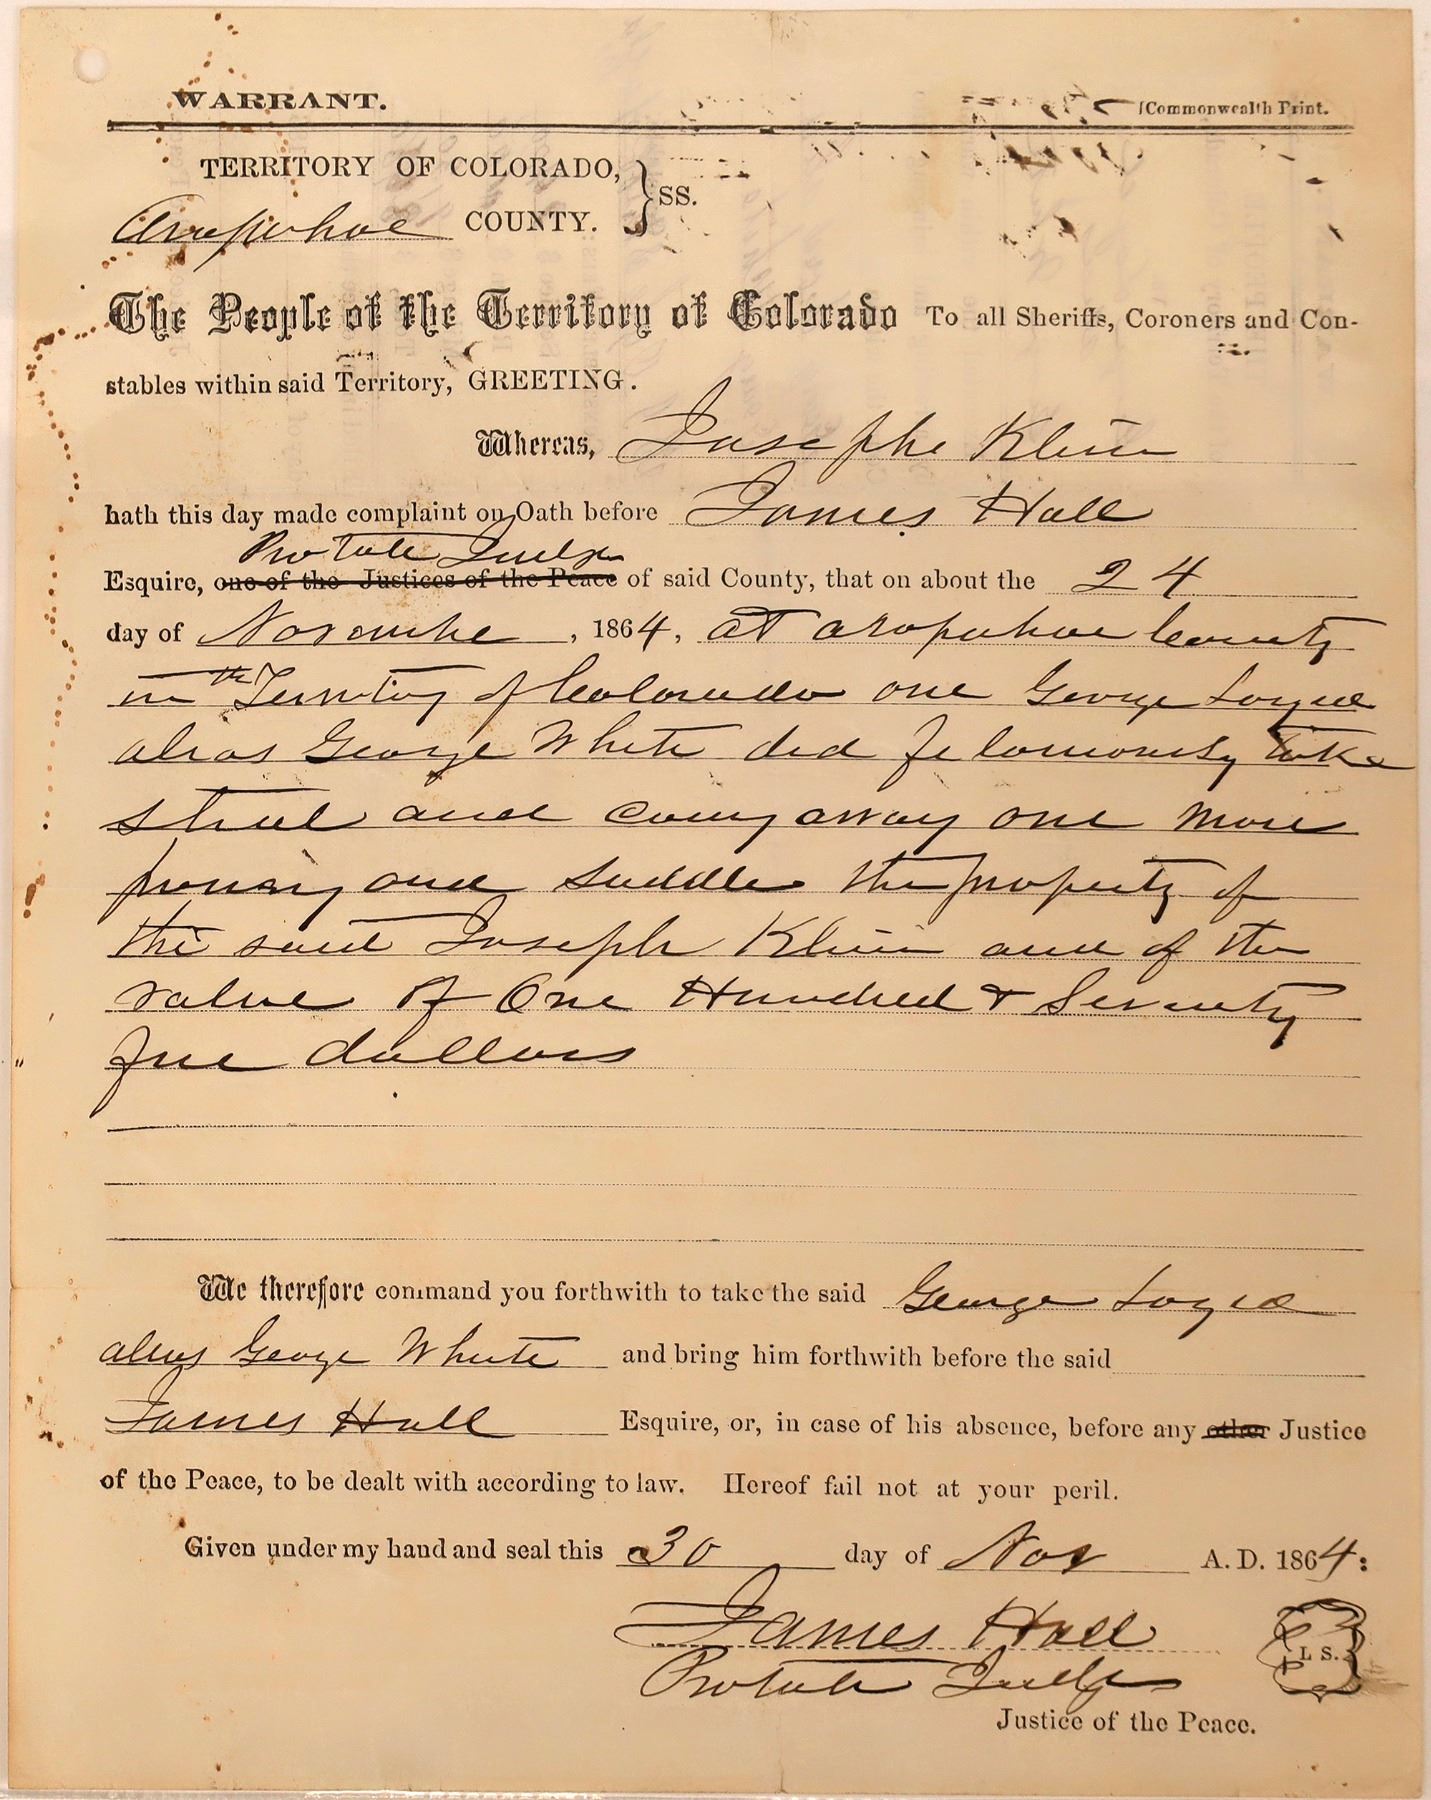 WARRANT.
[Commonwealth Print.
TERRITORY OF COLORADO,
Arrapahoe COUNTY. } SS.
The People of the Territory of Colorado To all Sheriffs, Coroners and Con-
stables within said Territory, GREETING.
Whereas, Josephe Klein
hath this day made complaint on Oath before James Hall
Probate Judge
Esquire, one of the Justices of the Peace of said County, that on about the 24
day of November, 1864, at arapahoe County
in the Territory of Colorado one George
alias George White did feloniously take
steal and carry away one mare
poney and saddle the property of
the said Joseph Klein and of the
value of One Hundred & Seventy
five dollars
We therefore command you forthwith to take the said George
alias George White and bring him forthwith before the said
James Hall Esquire, or, in case of his absence, before any other Justice
of the Peace, to be dealt with according to law. Hereof fail not at your peril.
Given under my hand and seal this 30 day of Nov A. D. 1864:
James Hall
L S.
Probate Judge
Justice of the Peace.